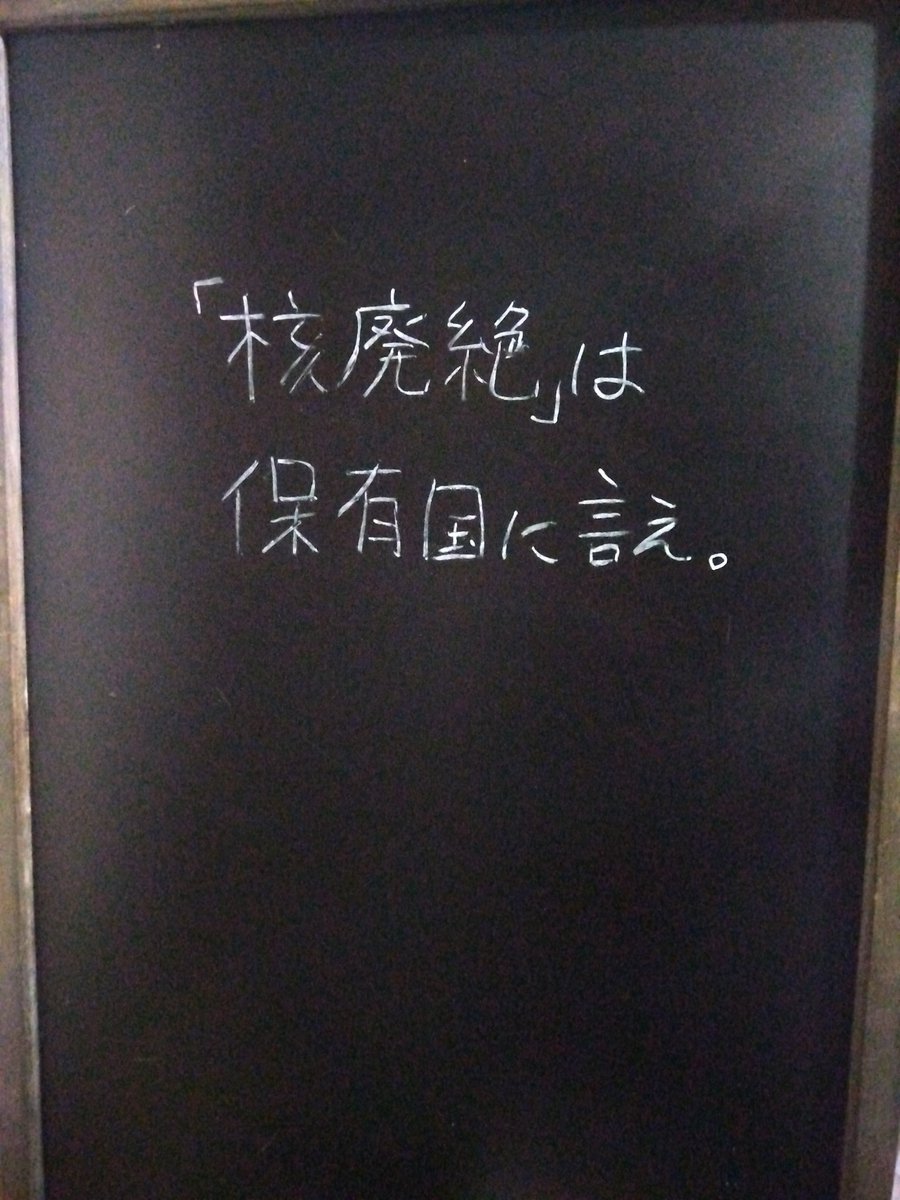 「核廃絶」は
保有国に言え。